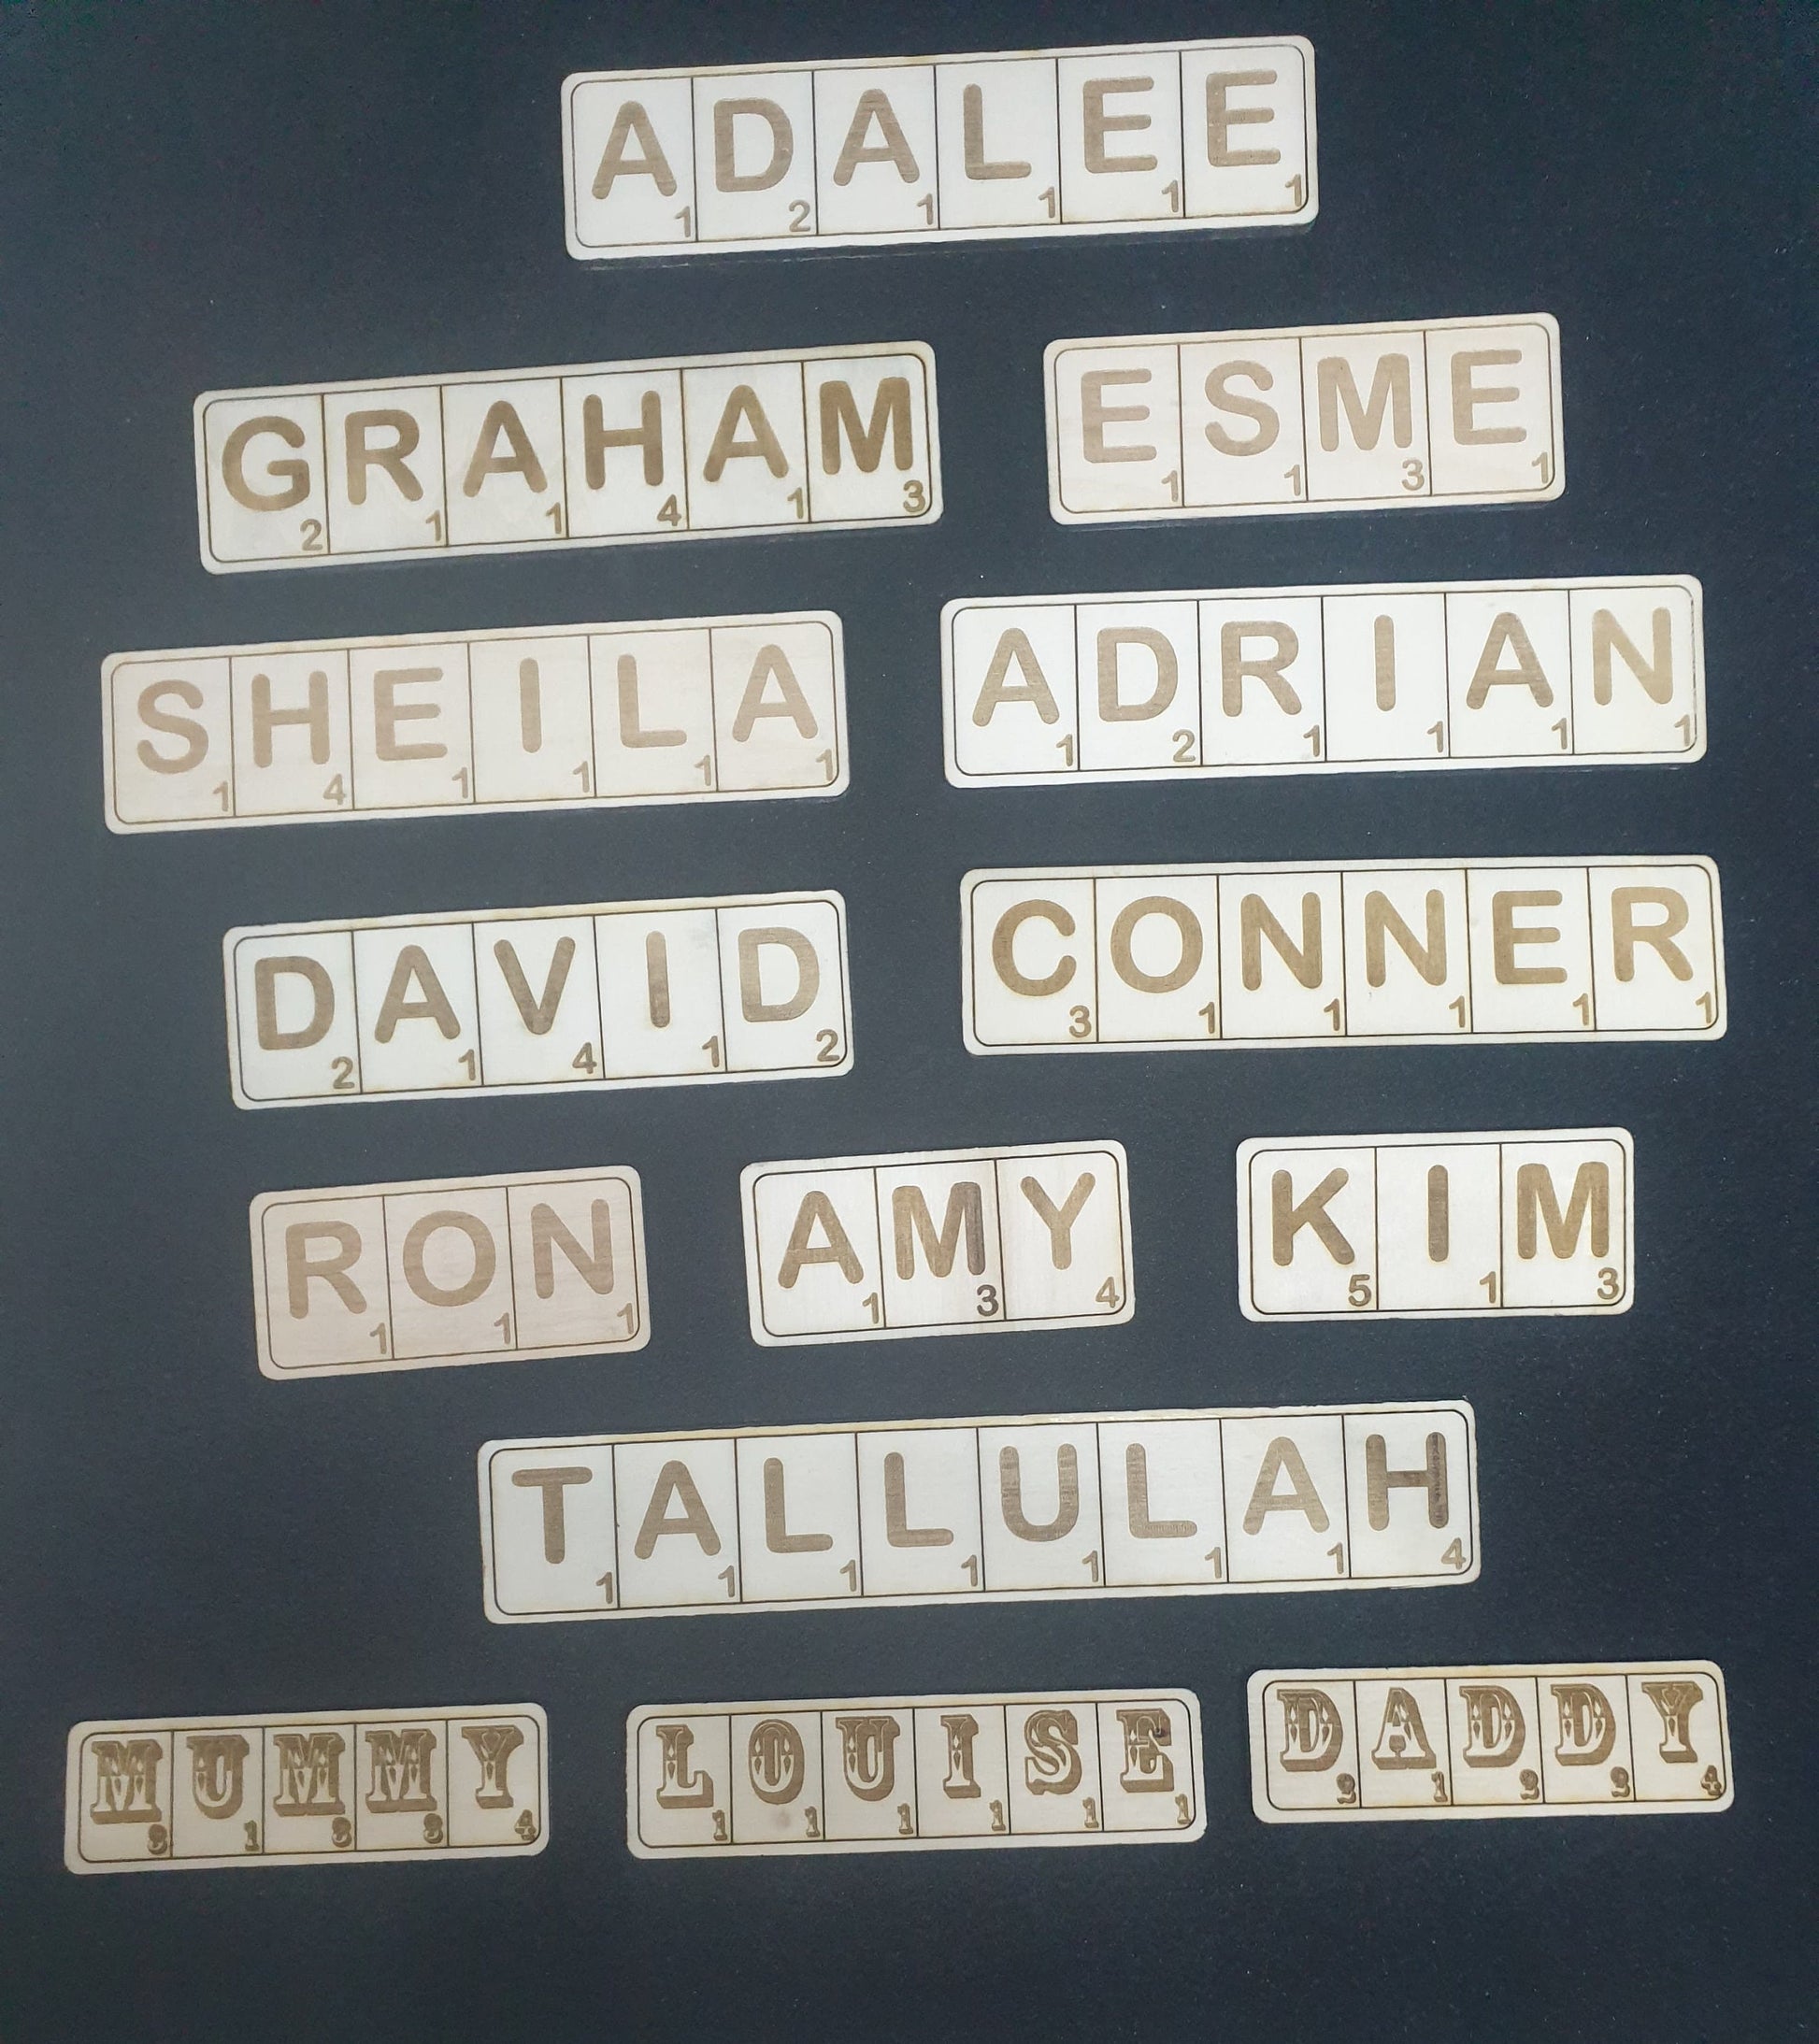 A1 D2 A1 L1 E1 E1
G2 R1 A1 H4 A1 M3
E1 S1 M3 E1
S1 H4 E1 I1 L1 A1
A1 D2 R1 I1 A1 N1
D2 A1 V4 I1 D2
C3 O1 N1 N1 E1 R1
R1 O1 N1
A1 M3 Y4
K5 I1 M3
T1 A1 L1 L1 U1 L1 A1 H4
M3 U1 M3 M3 Y4
L1 O1 U1 I1 S1 E1
D2 A1 D2 D2 Y4